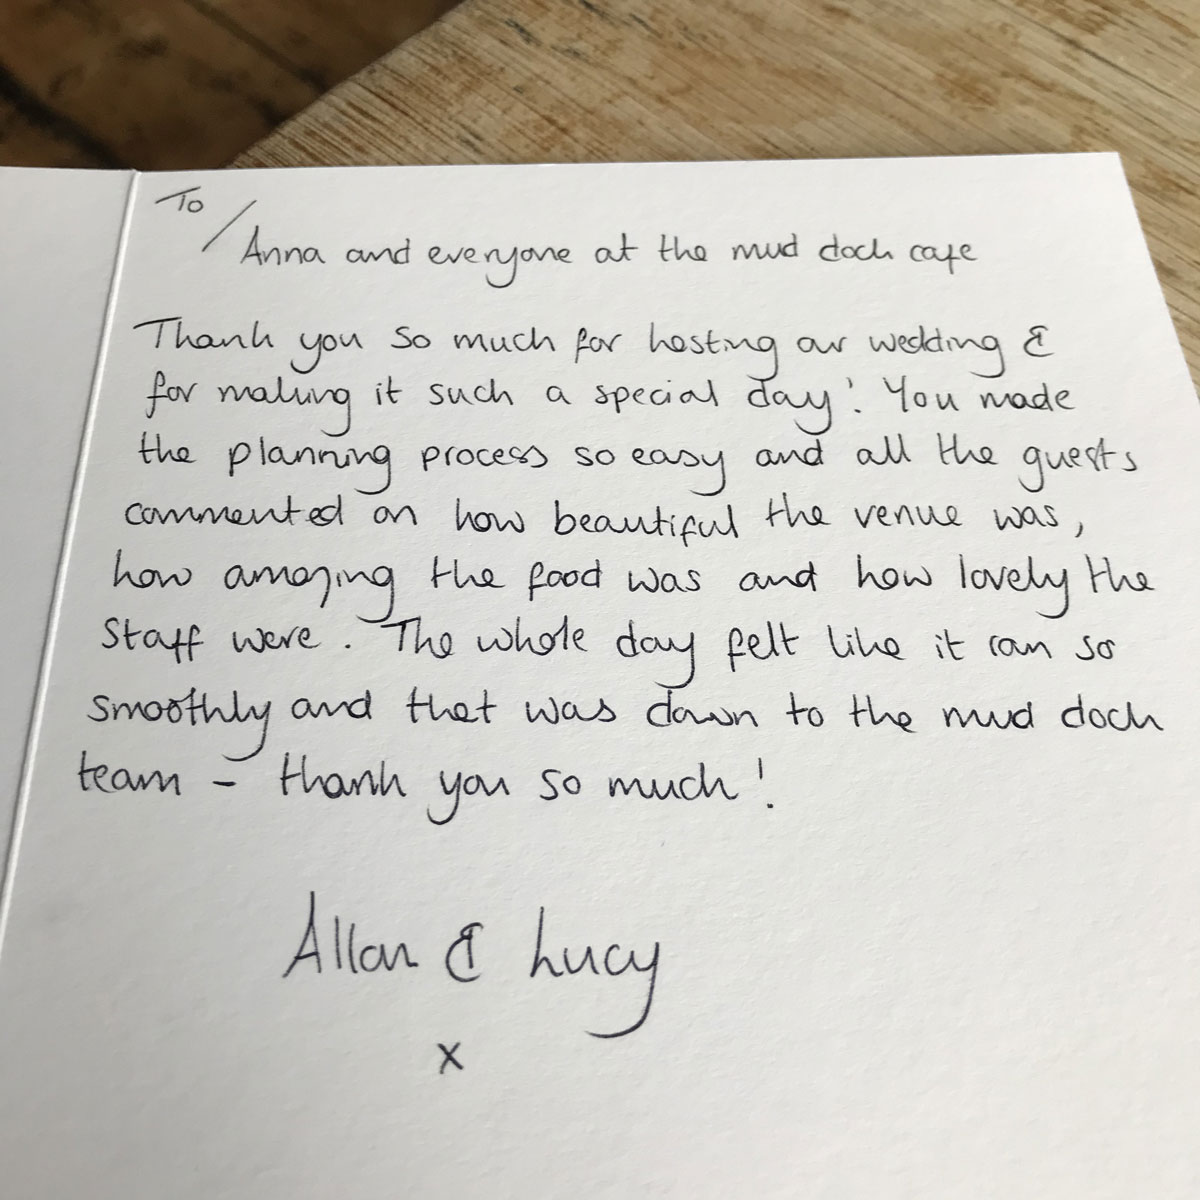 To/
Anna and everyone at the mud dock cafe
Thank you so much for hosting our wedding &
for making it such a special day! You made
the planning process so easy and all the guests
commented on how beautiful the venue was,
how amazing the food was and how lovely the
staff were. The whole day felt like it ran so
smoothly and that was down to the mud dock
team - thank you so much!
Allan & Lucy
x